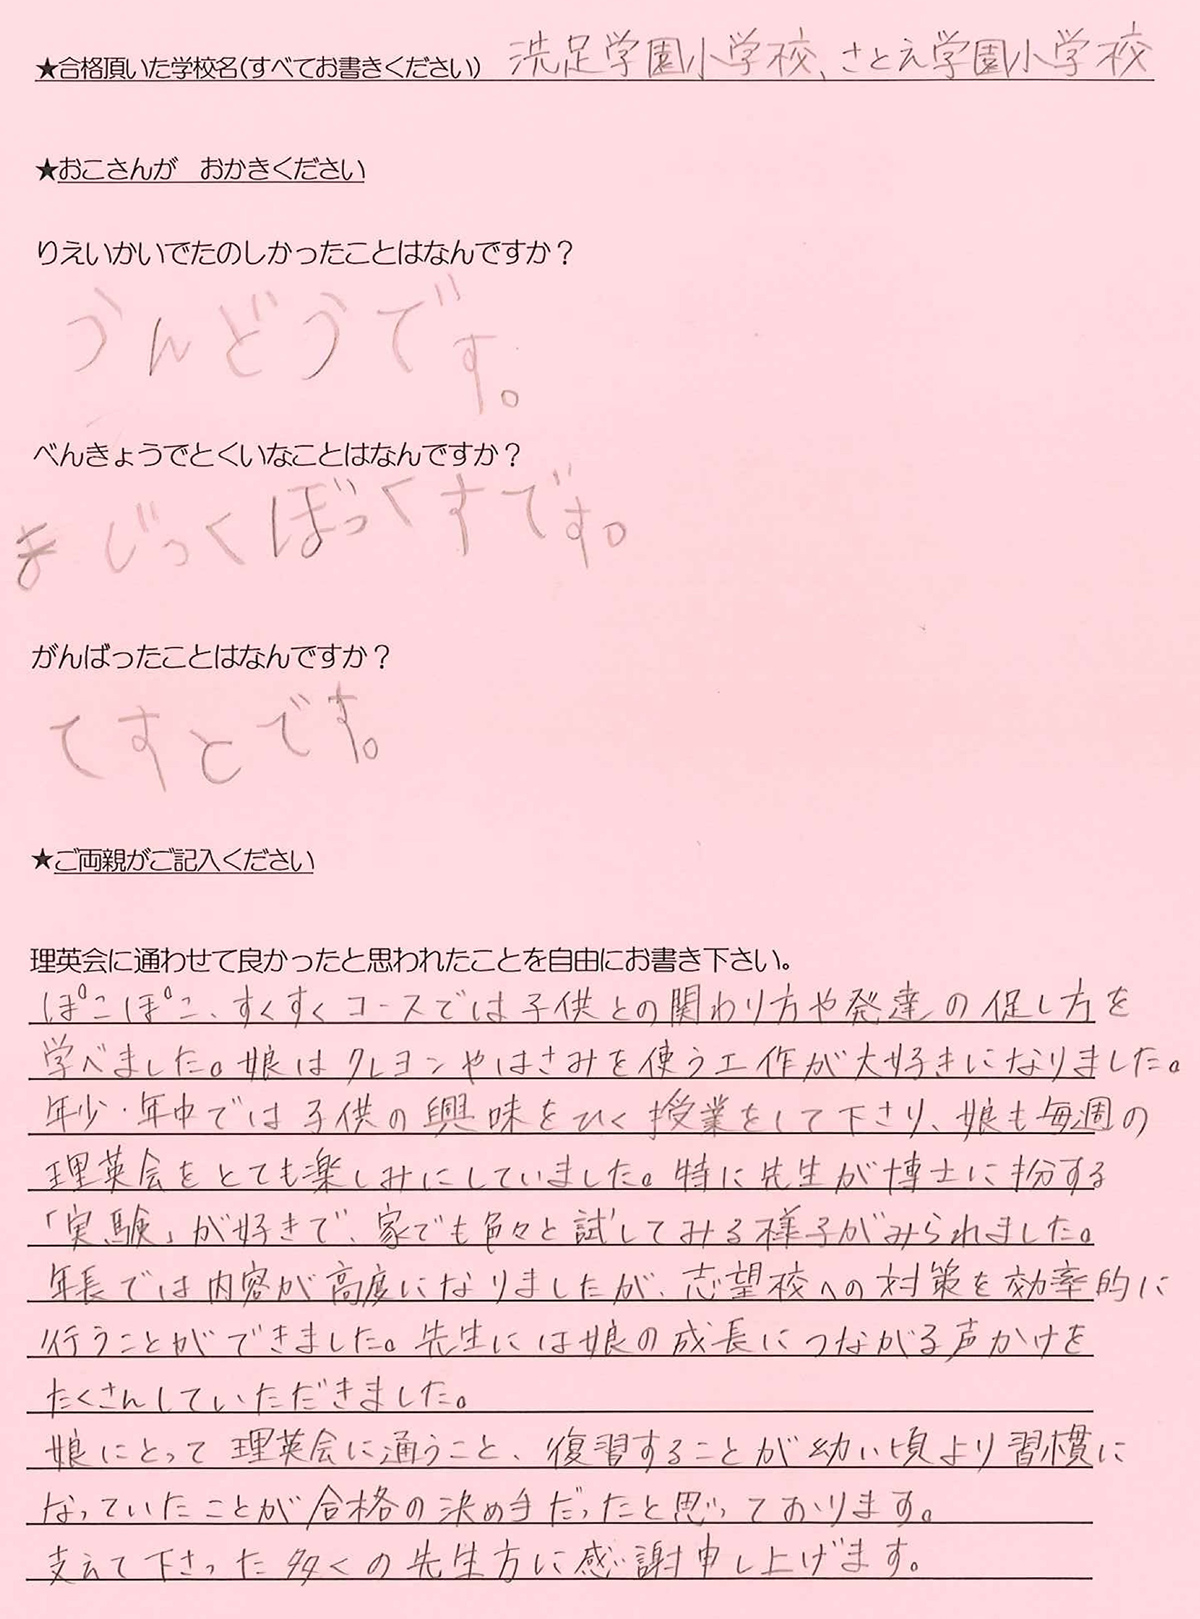 ★合格頂いた学校名(すべてお書きください) 洗足学園小学校、さとえ学園小学校
★おこさんが　おかきください
りえいかいでたのしかったことはなんですか？
うんどうです。
べんきょうでとくいなことはなんですか？
まじっくぼっくすです。
がんばったことはなんですか？
てすとです。
★ご両親がご記入ください
理英会に通わせて良かったと思われたことを自由にお書き下さい。
ぽこぽこ、すくすくコースでは子供との関わり方や発達の促し方を
学べました。娘はクレヨンやはさみを使う工作が大好きになりました。
年少・年中では子供の興味をひく授業をして下さり、娘も毎週の
理英会をとても楽しみにしていました。特に先生が博士に扮する
「実験」が好きで、家でも色々と試してみる様子がみられました。
年長では内容が高度になりましたが、志望校への対策を効率的に
行うことができました。先生には娘の成長につながる声かけを
たくさんしていただきました。
娘にとって理英会に通うこと、復習することが幼い頃より習慣に
なっていたことが合格の決め手だったと思っております。
支えて下さった多くの先生方に感謝申し上げます。